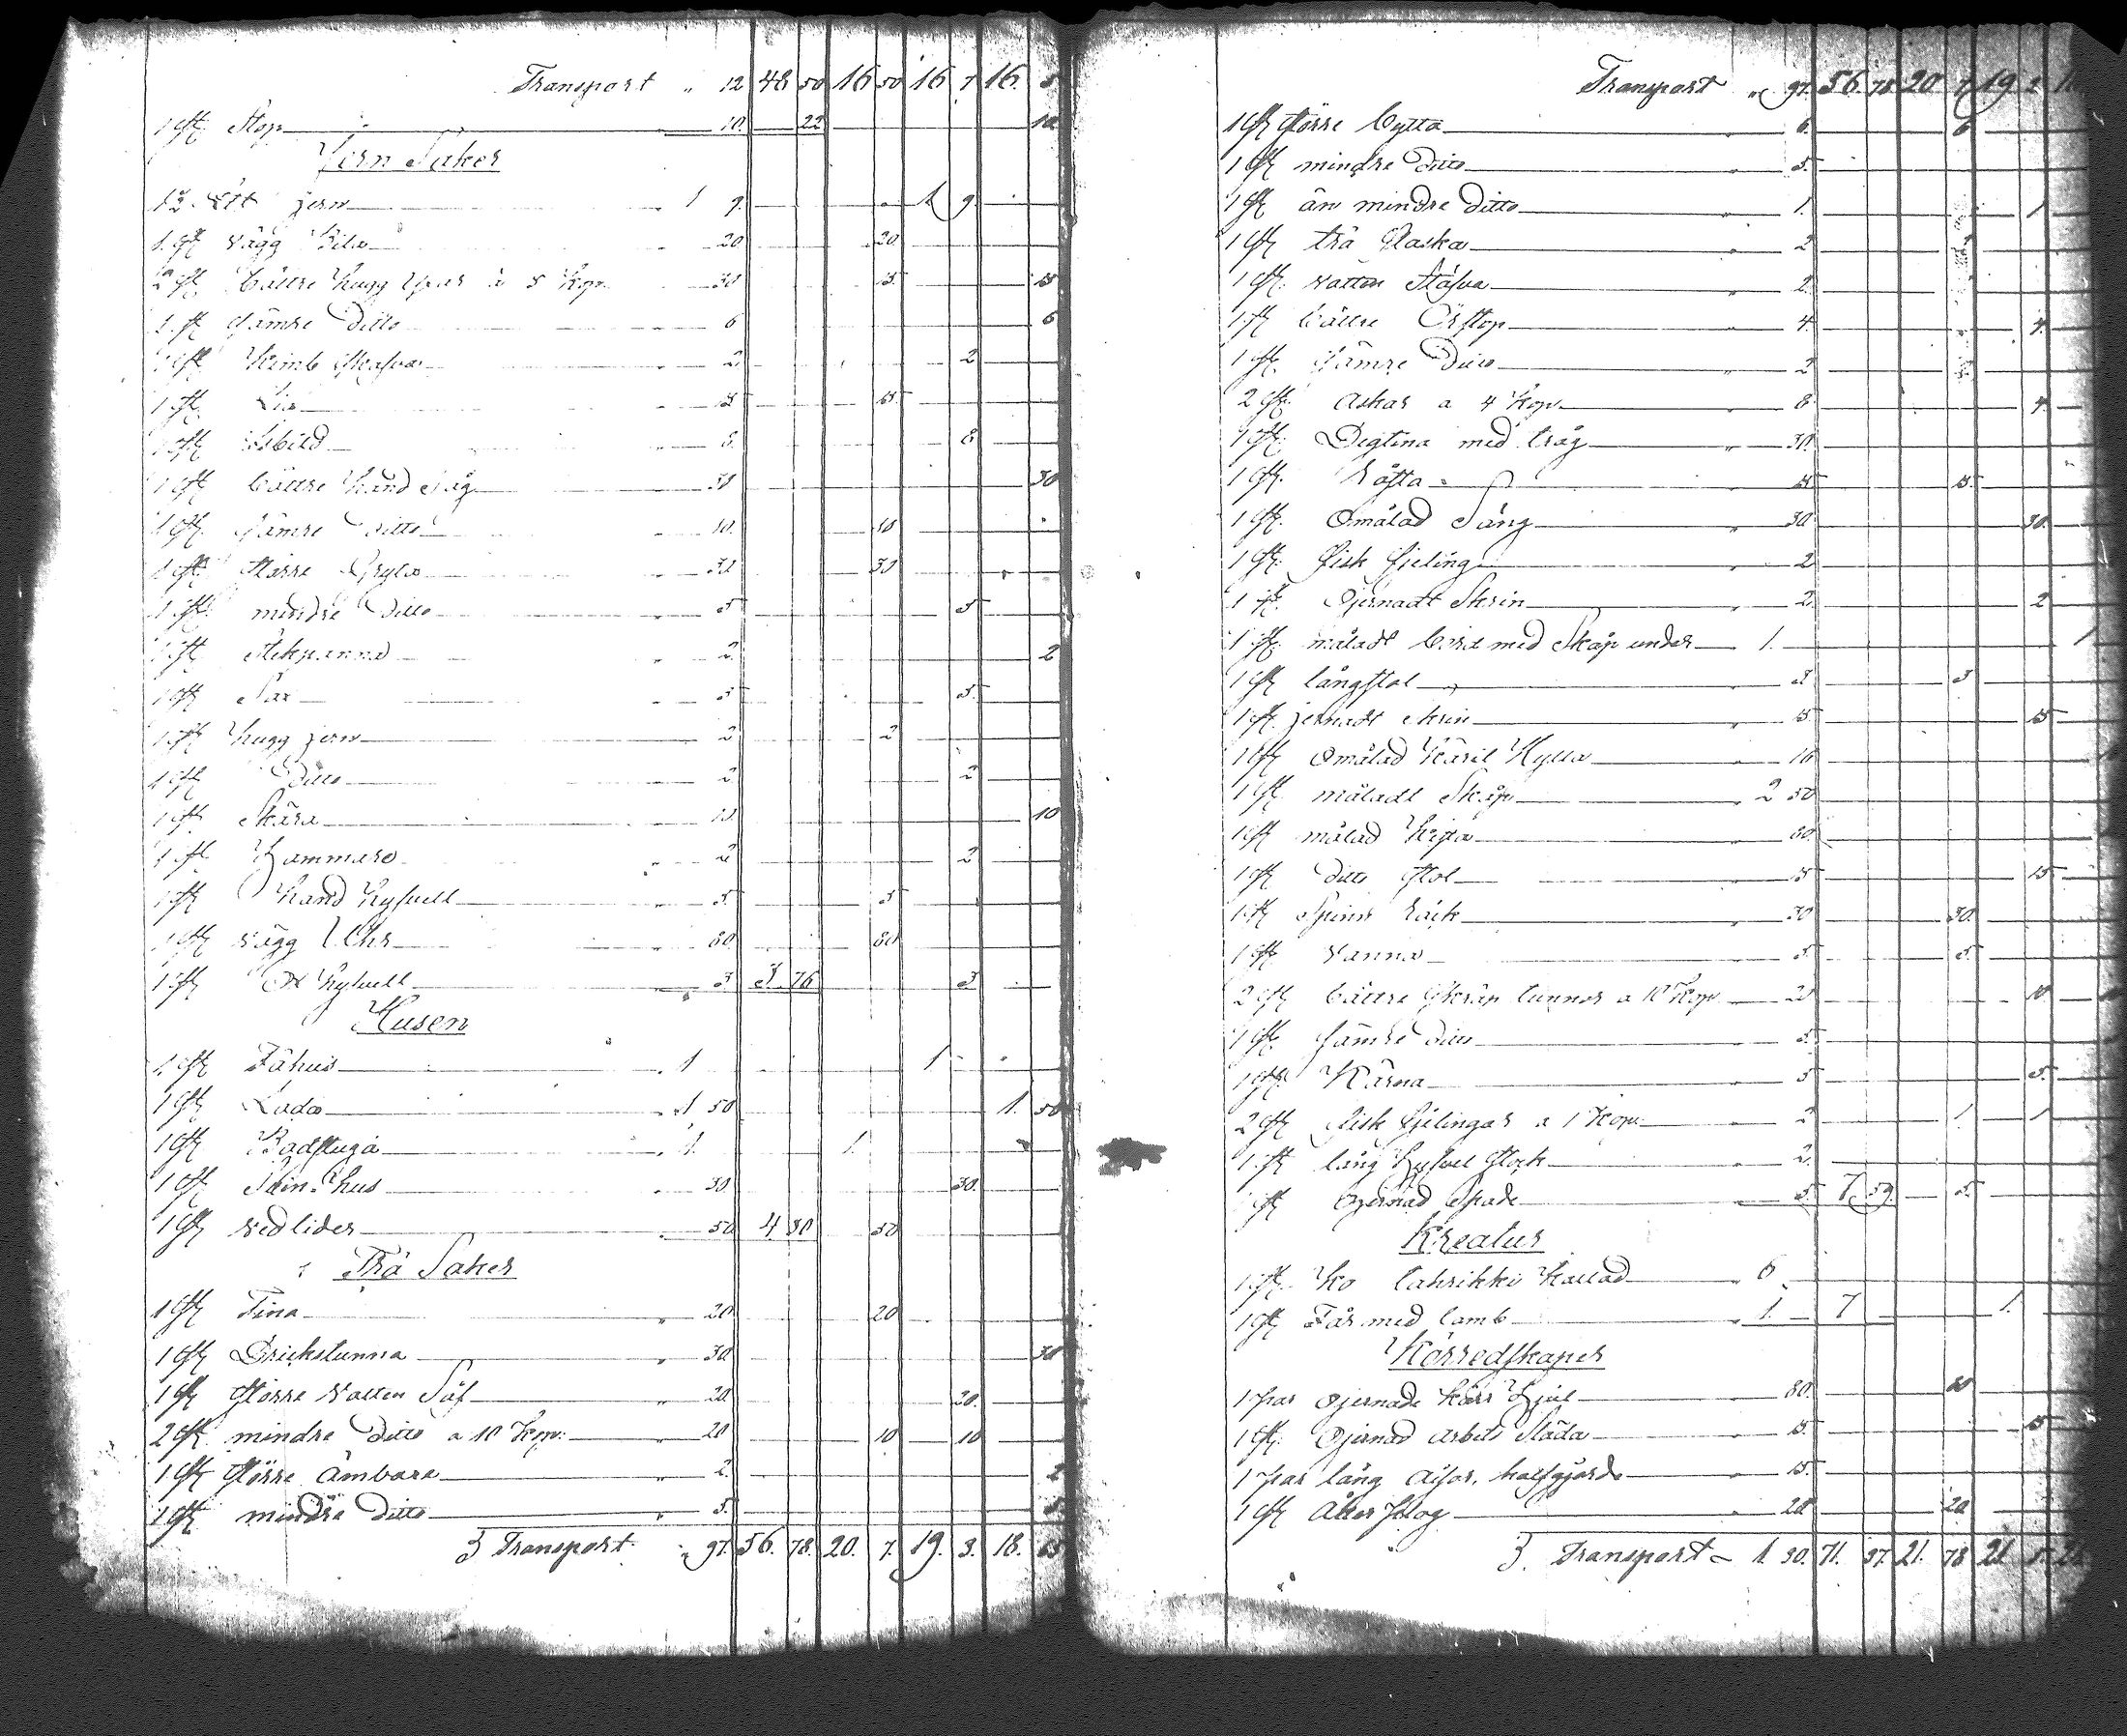 Transport " 12 48 50 16 50 16 7 16. 5
1 st Stop 10. 22 10
Jern Saker
12 Ltt jern 1 9. 1 9.
1 st vägg Kila 20 20
2 st bättre hugg Yxar à 15 Kop. 30 15 15
1 st sämre Ditto 6 6
1 st Kimb Skafva 2 2
1 st Lia 15 15
1 st Isbild 8 8
1 st bättre hand Såg 30 30
1 st sämre Ditto 10. 10
1 st större Gryta 30 30
1 st mindre Ditto 5 5
1 st Stekpanna 2 2
1 st Sax 5 5
1 st hugg jern 2 2
1 st Ditto 2 2
1 st Skära 10 10
1 st Hammare 2 2
1 st hand hyfvell 5 5
1 st vägg Uhr 80 80
1 st hyfvell 3 3 76 3
Husen
1 st Fähus 1 1
1 st Lada 1 50 1. 50
1 st Badstuga 1. 1.
1 st hus 30 30.
1 st vedlider 50 4 30 50
Trä Saker
1 st Tina 20 20
1 st Drickstunna 30 30
1 st större vatten Så 20 20.
2 st mindre Ditto a 10 Kop. 20 10 10
1 st större Ämbare 2. 2
1 st mindre Ditto 5. 5
3 Transport " 97. 56. 78. 20. 7. 19. 3. 18. 65
Transport " 97. 56. 78 20 7 19 3
1 st större bytta 6. 6
1 st mindre Ditto 5.
1 st än mindre Ditto 1. 1
1 st trä flaska 2
1 st vatten Stäfva 2
1 st bättre Örstop 4. 4.
1 st sämre Ditto 2
2 st Askar a 4 Kop. 8 4.
1 st Degtina med tråg 30.
1 st 15 15.
1 st omålad Säng 30 30.
1 st fisk fjeling 2
1 st Ojernadt Skrin 2. 2
1 st måladt bord med Skåp under 1. 1
1 st långstol 3 3
1 st jernadt skrin 15 15
1 st omålad Käril Hylla 16
1 st måladt Skåp 2 50
1 st målad Kista 80.
1 st Ditto stol 15 15
1 st Spinn Råck 30 30.
1 st vanna 5. 5.
2 st bättre tunnor a 10 Kop 20 10
1 st sämre Ditto 5.
1 st Kärna 5 5.
2 st fisk fjelingar a 1 Kop. 2 1 1
1 st lång hyfvel stock 2.
1 st Ojernad Spade 5. 7 59. 5.
Kreatur
1 st Ko kallad 6
1 st Får med lamb 1. 7 1.
Körredskaper
1 par ojernade kärr hjul 80.
1 st Ojernad arbets Släda 15. 15
1 par lång halfgjorda 15.
1 st Åker plog 20 20
3. Transport 1. 30. 71. 37. 21. 78 21